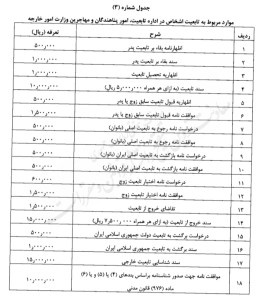 جدول شماره (۳)
موارد مربوط به تابعیت اشخاص در اداره تابعیت، امور پناهندگان و مهاجرین وزارت امور خارجه
ردیف شرح تعرفه (ریال)
۱ اظهارنامه بقاء بر تابعیت پدر ۵۰۰,۰۰۰
۲ سند بقاء بر تابعیت پدر ۱,۰۰۰,۰۰۰
۳ اظهاریه تحصیل تابعیت ۱,۰۰۰,۰۰۰
۴ سند تابعیت (به ازای هر همراه ۵,۰۰۰,۰۰۰ ریال) ۱۰,۰۰۰,۰۰۰
۵ اظهاریه قبول تابعیت سابق زوج یا پدر ۵۰۰,۰۰۰
۶ موافقت نامه قبول تابعیت سابق زوج یا پدر ۱,۵۰۰,۰۰۰
۷ درخواست نامه رجوع به تابعیت اصلی (بانوان) ۵۰۰,۰۰۰
۸ موافقت نامه رجوع به تابعیت اصلی (بانوان) ۱,۰۰۰,۰۰۰
۹ درخواست نامه بازگشت به تابعیت اصلی ایران (بانوان) ۵۰۰,۰۰۰
۱۰ موافقت نامه بازگشت به تابعیت اصلی ایران (بانوان) ۱,۰۰۰,۰۰۰
۱۱ درخواست نامه اختیار تابعیت زوج ۶۰۰,۰۰۰
۱۲ موافقت نامه اختیار تابعیت زوج ۱,۵۰۰,۰۰۰
۱۳ تقاضای خروج از تابعیت ۱,۵۰۰,۰۰۰
۱۴ سند خروج از تابعیت (به ازای هر همراه ۲,۵۰۰,۰۰۰ ریال) ۱۵,۰۰۰,۰۰۰
۱۵ درخواست برگشت به تابعیت دولت جمهوری اسلامی ایران ۵۰۰,۰۰۰
۱۶ سند برگشت به تابعیت جمهوری اسلامی ایران ۱,۰۰۰,۰۰۰
۱۷ سند شناسایی تابعیت خارجی ۱۵,۰۰۰,۰۰۰
۱۸ موافقت نامه جهت صدور شناسنامه براساس بندهای (۴) یا (۵) و یا (۶) ۱۰,۰۰۰,۰۰۰
ماده (۹۷۶) قانون مدنی